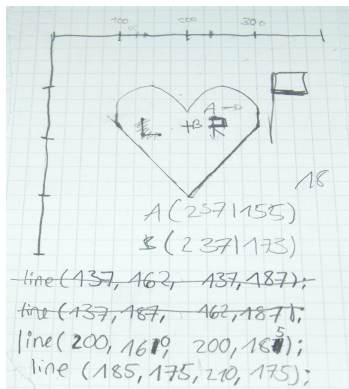 100 200 300
A
+B
18
A(237|155)
B(237|173)
line(137, 162, 137, 187);
line(137, 187, 162, 187);
line(200, 160, 200, 185);
line(185, 175, 210, 175);